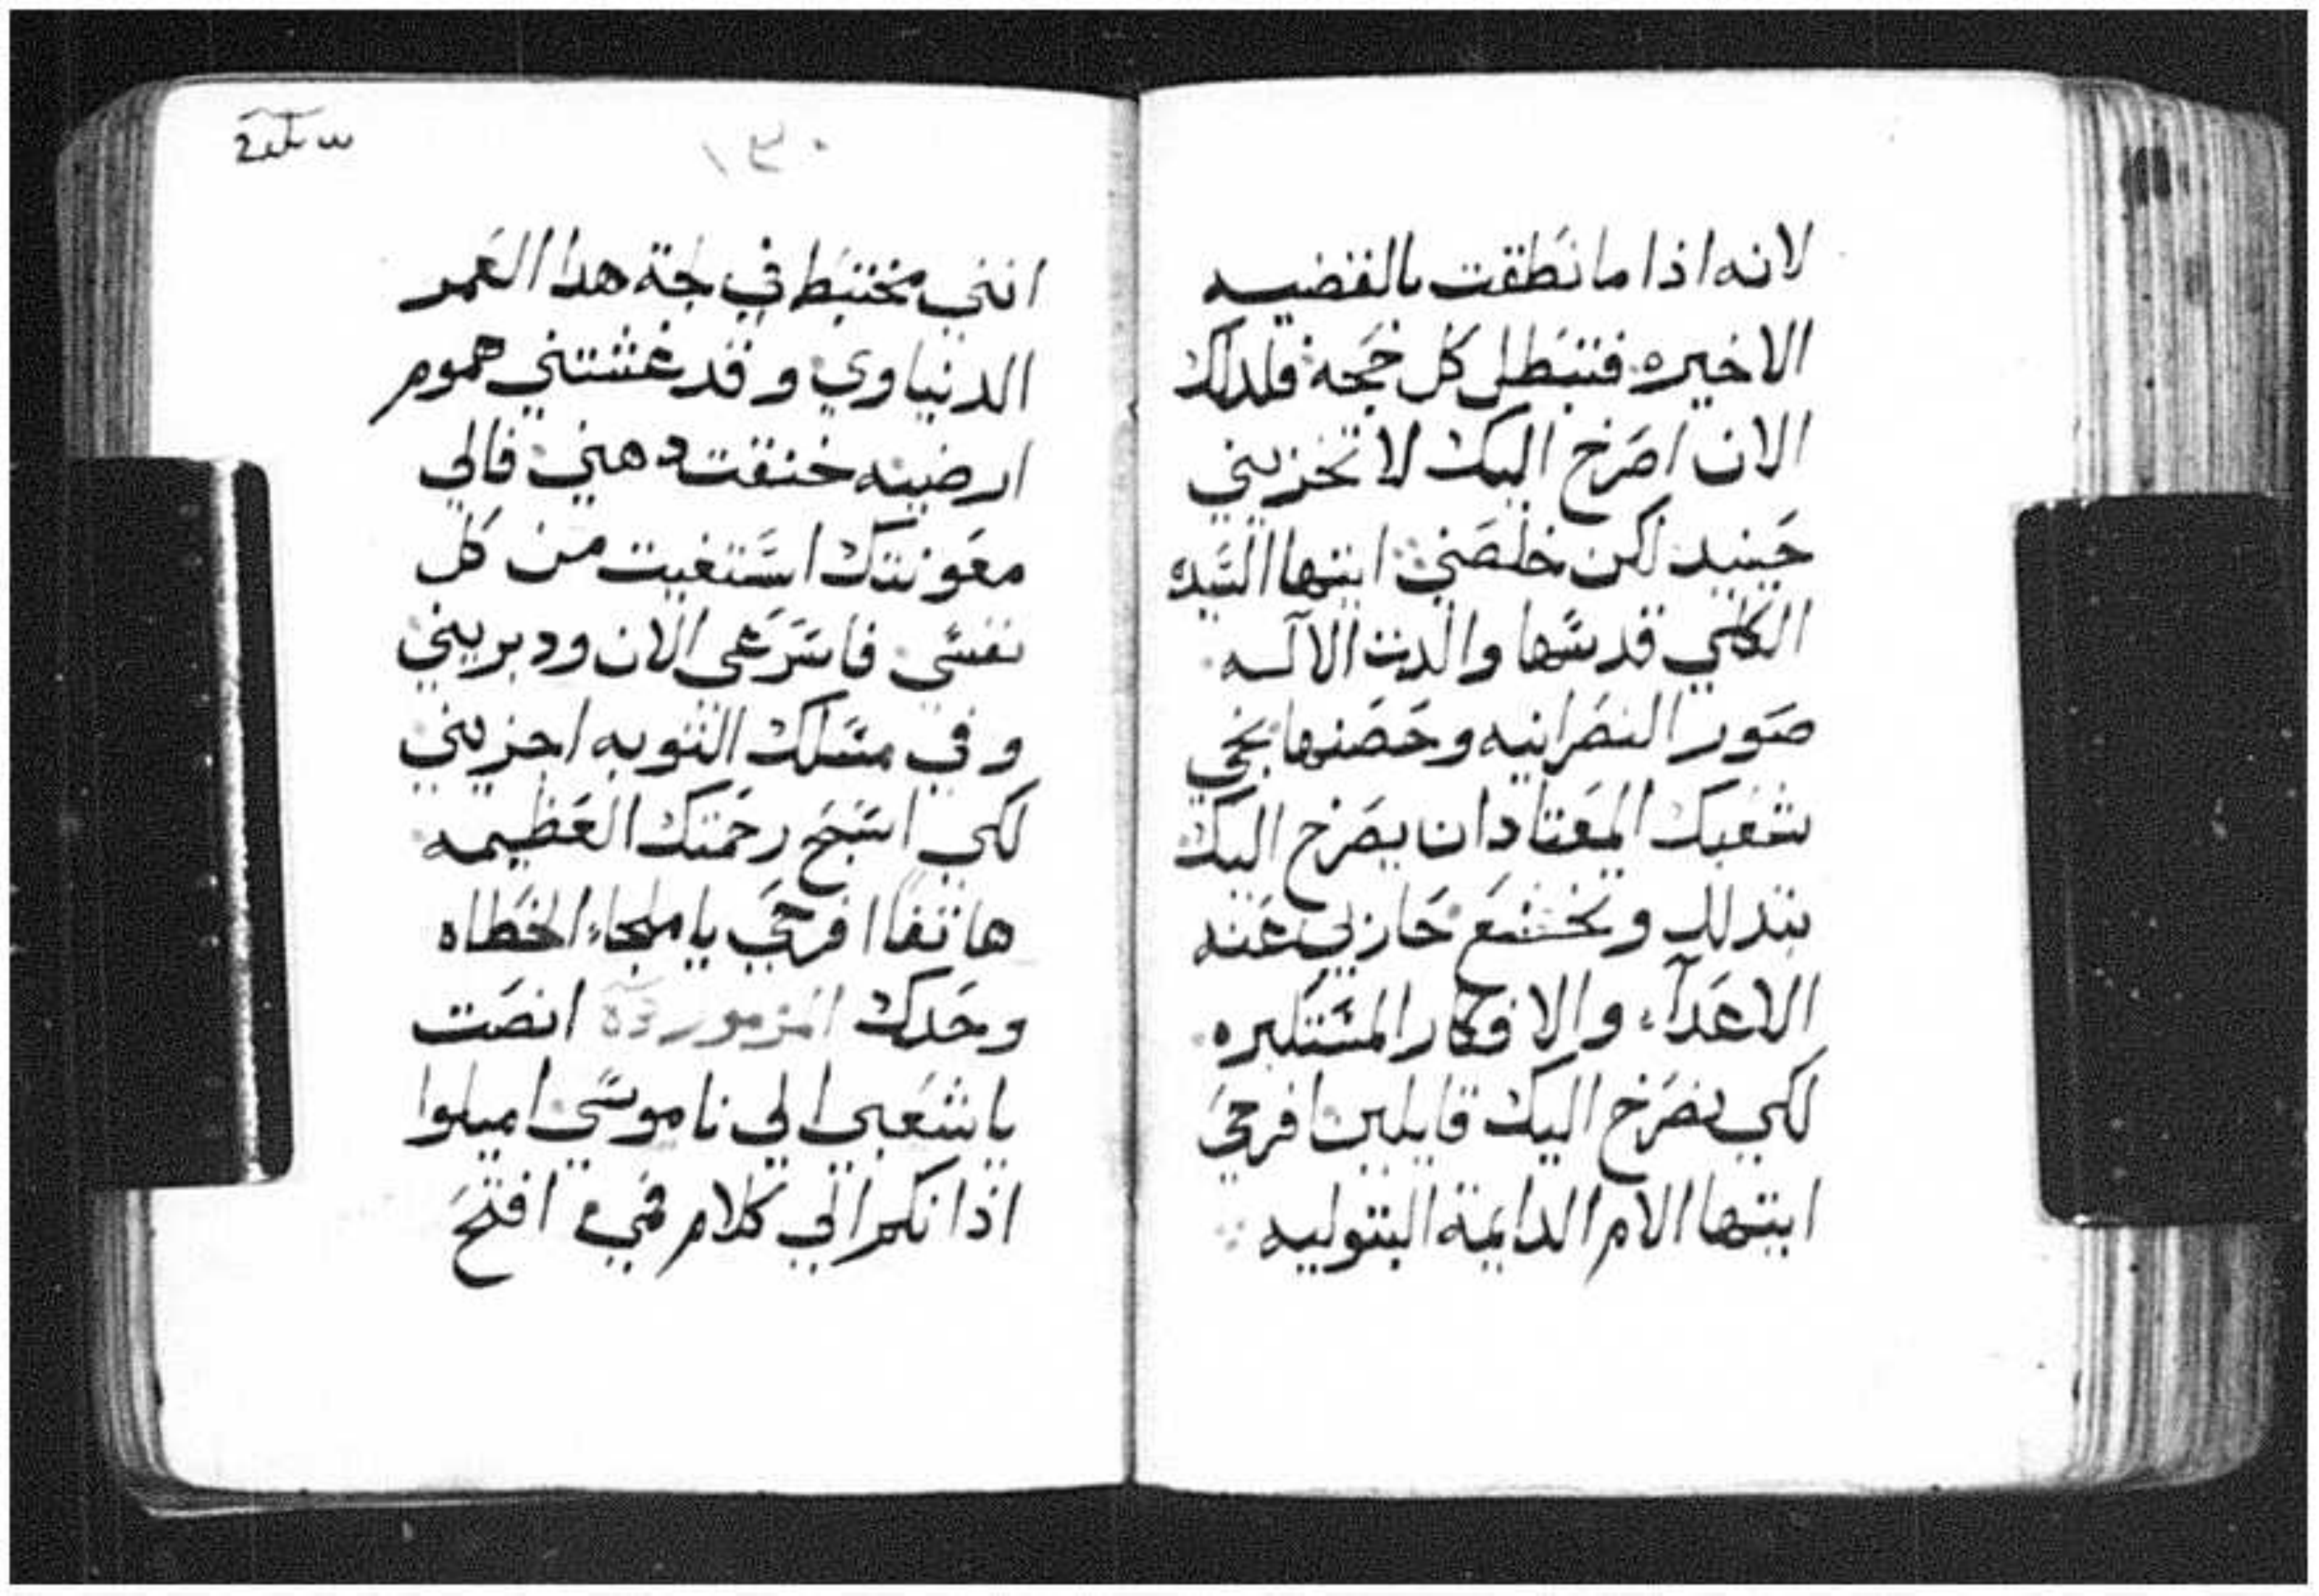 لانه اذا ما نطقت بالقضيه
الاخيره فتبطل كل حجحه فلدلك
الان اصرخ اليك لا تخزيني
حينيد لكن خلصني ايتها السيده
الكلي قدسها والدت الآله
صور النصرانيه وحصنها نجي
شعبك المعتاد ان يصرخ اليك
بتدلل وتخشع حازلي عنه
الاعدآء والافكار المستكبره
لكي نصرخ اليك قايلين افرحي
ايتها الام الدايمة البتوليه
١٣٠
انني مختبط في لجة هدا العمر
الدنياوي وقد غشتني هموم
ارضييه خنقت دهني فالي
معونتك استغيت من كل
نفسي فاسرعي الان ودبريني
وفي مسلك التوبه اجزيني
لكي اسبح رحمتك العظيمه
هاتفا افرحي يا ملجاء الخطاه
وحدك المزمور انصت
يا شعبي الي ناموسي اميلوا
اذانكم الي كلام فمي افتح